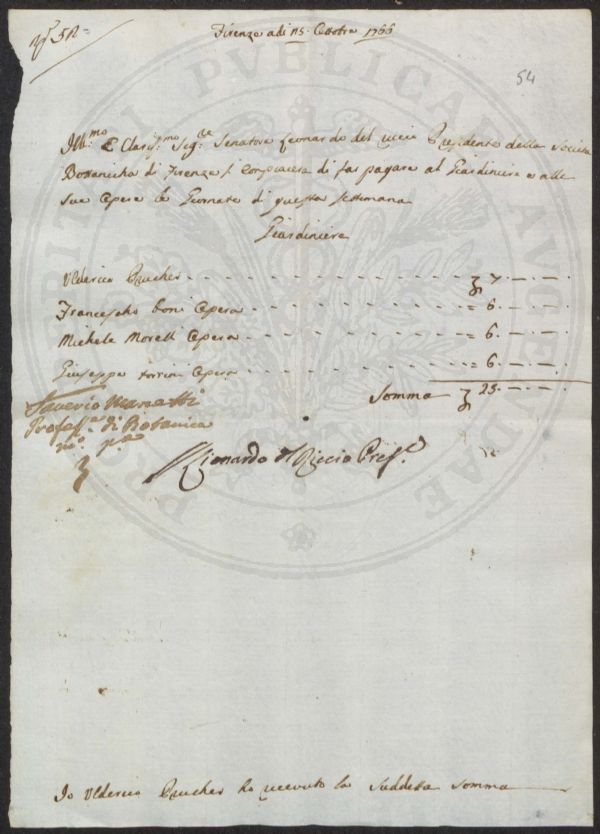 No 52=
Firenze a di 15. Ottobre 1766
54
Ill:mo E Clariss:mo Sig:re Senatore Leonardo del riccio Presidente della Societa
Bottanicha di Firenze si Compiacera di far pagare al Giardiniere e alle
sue Opere le Giornate di questa settimana
Giardiniere
Ulderico Prucher - - - - - - - - 7 - - -
Francescho boni Opera - - - - - - - = 6 - - -
Michele Morelli Opera - - - - - - - = 6 - - -
Giuseppe Opera - - - - - - - = 6 - - -
Somma 25 - - -
Saverio Manetti
Profess.re di Botanica
mo. pa.
Lionardo del Riccio Pres.e
Io Ulderico Prucher ho ricevuto la suddetta somma
PROSPERITATI PVBLICAE AVGENDAE